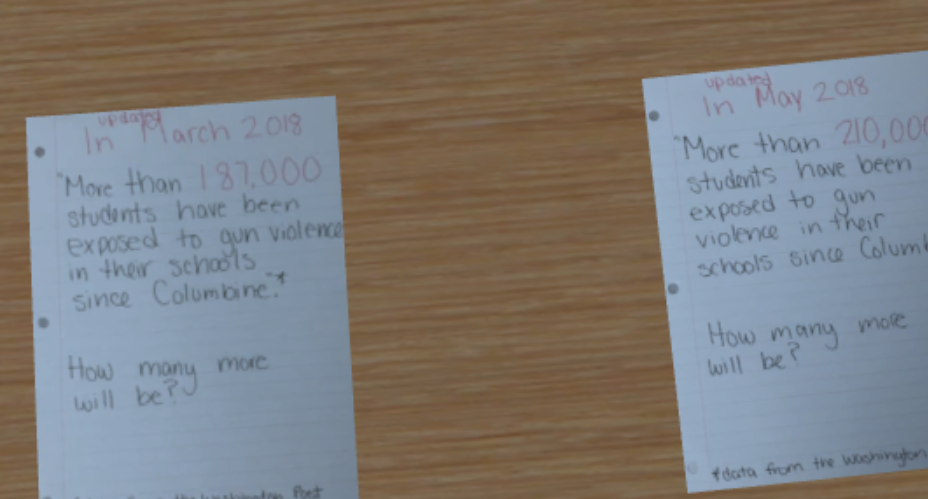 updated
In March 2018
"More than 187,000
students have been
exposed to gun violence
in their schools
since Columbine."*
How many more
will be?
the Washington Post
updated
In May 2018
"More than 210,000
students have been
exposed to gun
violence in their
schools since Columb
How many more
will be?
*data from the Washington